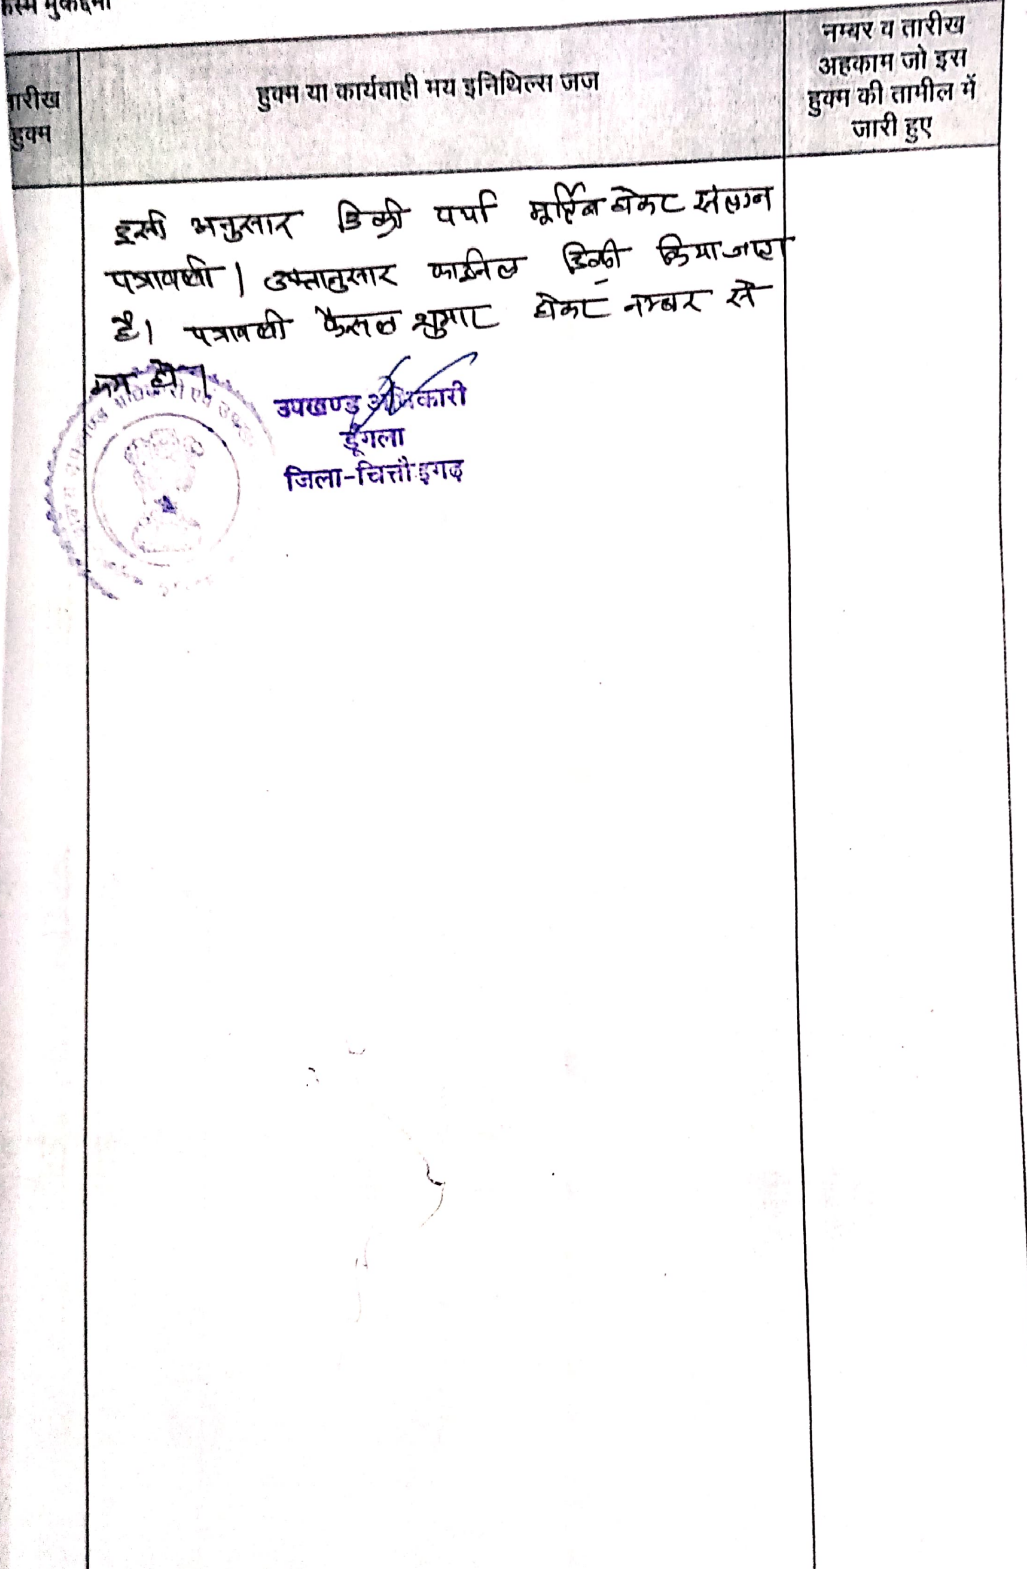 किस्म मुकदमा
तारीख
हुक्म
हुक्म या कार्यवाही मय इनिथिल्स जज
नम्बर व तारीख
अहकाम जो इस
हुक्म की तामील में
जारी हुए
इसी अनुसार डिक्री पर्चा मूर्तिब होकर संलग्न
पत्रावली। उक्तानुसार फाईनल डिक्री किया जाता
है। पत्रावली फैसल शुमार होकर नम्बर से
कम हो।
उपखण्ड अधिकारी
डूँगला
जिला-चित्तौड़गढ़